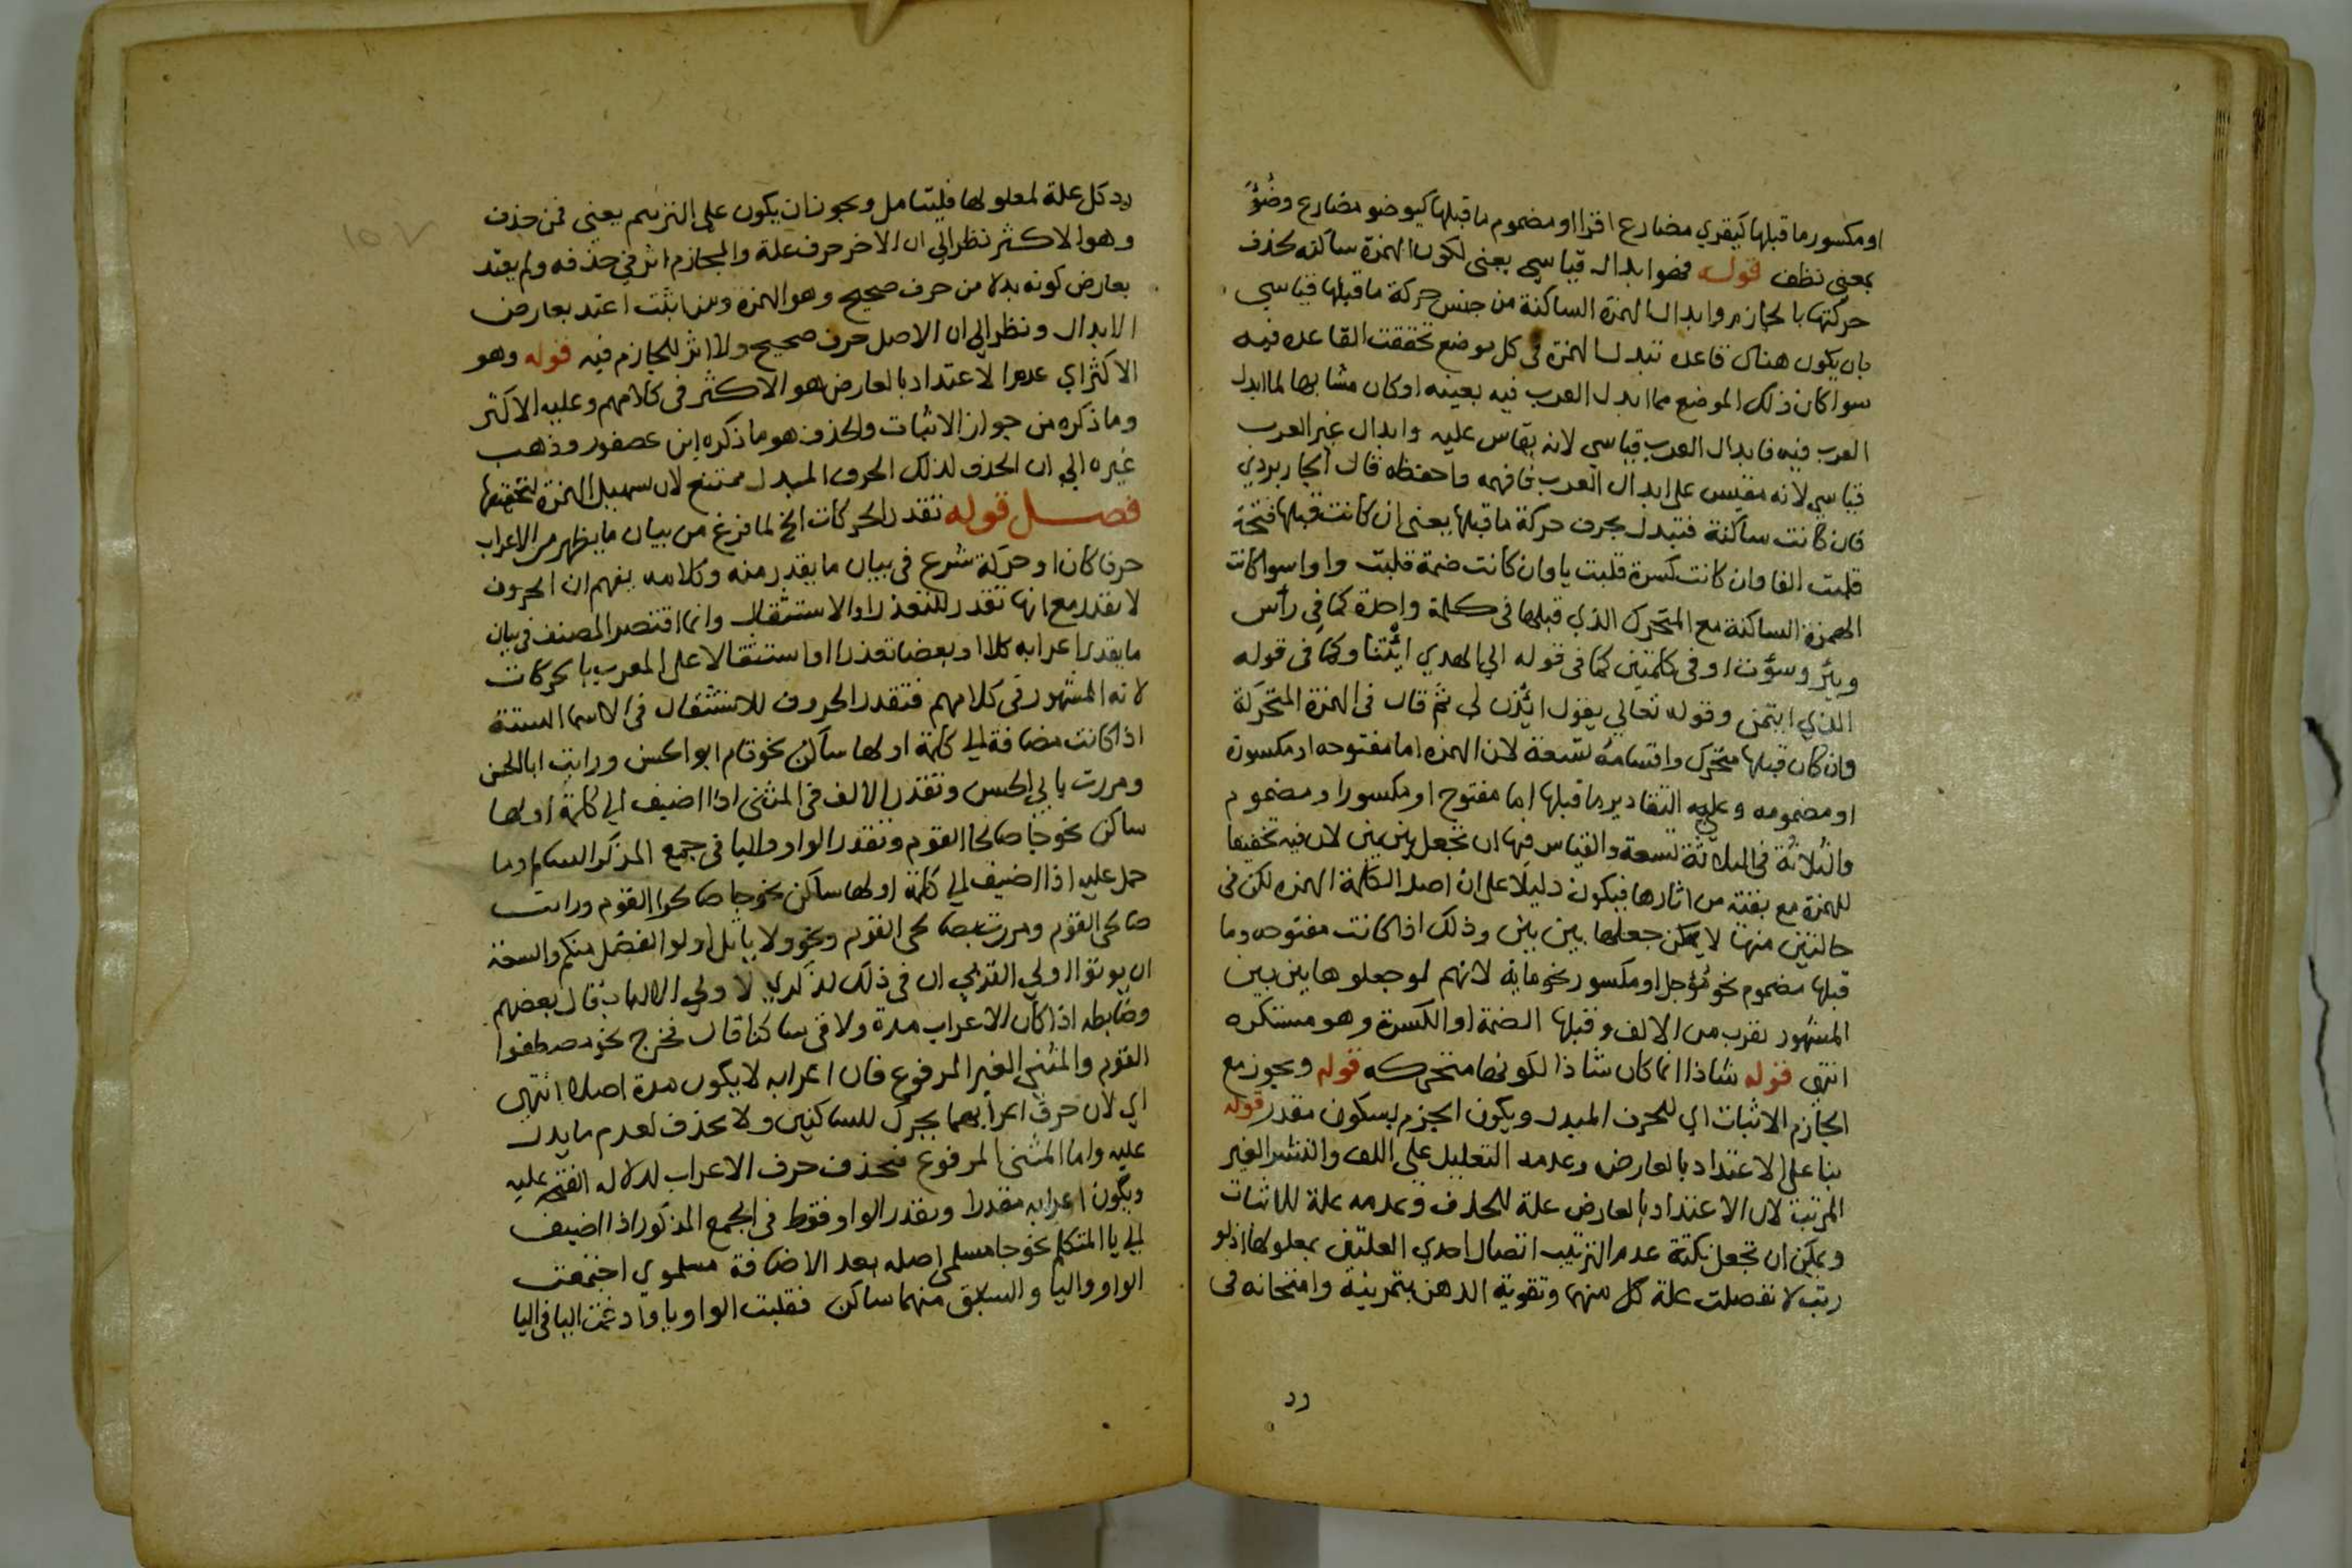 او مكسور ما قبلها كيقري مضارع اقرا او مضموم ما قبلها كيوضو مضارع وضُؤَ
بمعنى نظف قوله فهو ابدال قياسي يعني لكون الهمزة ساكنه بحذف
حركتها بالجازم وابدال الهمزة الساكنة من جنس حركة ما قبلها قياسي
بان يكون هناك قاعده تبدل الهمزة في كل موضع تحققت القاعده فيه
سوا كان ذلك الموضع مما ابدل العرب فيه بعينه او كان مشابها لما ابدل
العرب فيه فابدال العرب قياسي لانه يقاس عليه وابدال غير العرب
قياسي لانه مقيس على ابدال العرب فافهمه واحفظه قال الجاربردي
فان كانت ساكنة فتبدل بحرف حركة ما قبلها يعني ان كانت قبلها فتحة
قلبت الفا وان كانت كسرة قلبت يا وان كانت ضمة قلبت واوا سوا كانت
الهمزة الساكنة مع المتحرك الذي قبلها في كلمة واحدة كما في رأس
وبئر وسؤت او في كلمتين كما في قوله الي الهدي ائتنا وكما في قوله
الذي ايتمن وقوله تعالي يقول ائذن لي ثم قال في الهمزة المتحركة
وان كان قبلها متحرك واقسامه تسعة لان الهمزه اما مفتوحه او مكسورة
او مضمومه وعليه التقادير ما قبلها اما مفتوح او مكسور او مضموم
والثلاثة في الثلاثة تسعة والقياس فيها ان تجعل بين بين لان فيه تخفيفا
للهمزة مع بقية من اثارها فيكون دليلا على ان اصل الكلمة الهمزه لكن في
حالتين منها لا يمكن جعلها بين بين وذلك اذا كانت مفتوحه وما
قبلها مضموم نحو مُؤجل او مكسور نحو مايه لانهم لو جعلوها بين بين
المشهور تقرب من الالف وقبلها الضمة او الكسرة وهو مستكره
انتهى قوله شاذا انما كان شاذا لكونها متحركه قوله ويجوز مع
الجازم الاثبات اي للحرف المبدل ويكون الجزم بسكون مقدر قوله
بنا على الاعتداد بالعارض وعدمه التعليل على اللف والنشر الغير
المرتب لان الاعتداد بالعارض علة للحذف وعدمه علة للاثبات
ويمكن ان تجعل نكتة عدم الترتيب اتصال احدي العلتين بمعلولها اذ لو
رتب لانفصلت علة كل منهما وتقوية الذهن بتمرينه وامتحانه في
رد
رد كل علة لمعلولها فليتامل ويجوز ان يكون على الترتيب يعني فمن حذف
وهو الاكثر نظر الي ان الاخر حرف علة والجازم اثر في حذفه ولم يعتد
بعارض كونه بدلا من حرف صحيح وهو الهمزة ومن اثبت اعتد بعارض
الابدال ونظر الي ان الاصل حرف صحيح ولا اثر للجازم فيه قوله وهو
الاكثر اي عدم الاعتداد بالعارض هو الاكثر في كلامهم وعليه الاكثر
وما ذكره من جواز الاثبات والحذف هو ما ذكره ابن عصفور وذهب
غيره الي ان الحذف لذلك الحرف المبدل ممتنع لان تسهيل الهمزة كتحقيقها
فصل قوله تقدر الحركات الخ لما فرغ من بيان ما يظهر من الاعراب
حرفا كان او حركة شرع في بيان ما يقدر منه وكلامه يفهم ان الحروف
لا تقدر مع انها تقدر للتعذر او الاستثقال وانما اقتصر المصنف في بيان
ما يقدر اعرابه كلا او بعضا تعذرا او استثقالا على المعرب بالحركات
لانه المشهور في كلامهم فتقدر الحروف للاستثقال في الاسما الستة
اذا كانت مضافة الي كلمة اولها ساكن نحو قام ابو الحسن ورايت ابا الحسن
ومررت بابي الحسن وتقدر الالف في المثنى اذا اضيف الي كلمة اولها
ساكن نحو جا صالحا القوم وتقدر الواو واليا في جمع المذكر السالم وما
حمل عليه اذا اضيف الي كلمة اولها ساكن نحو جا صالحوا القوم ورايت
صالحي القوم ومررت بصالحي القوم ونحو ولا ياتل اولو الفضل منكم والسعة
ان يوتوا اولي القربي ان في ذلك لذكري لاولي الالباب قال بعضهم
وضابطه اذا كان الاعراب مدة ولاقى ساكنا قال فخرج نحو مصطفوا
القوم والمثني الغير المرفوع فان اعرابه لا يكون مدة اصلا انتهى
اي لان حرف اعرابهما يحرك للساكنين ولا يحذف لعدم ما يدل
عليه واما المثنى المرفوع فيحذف حرف الاعراب لدلالة الفتحة عليه
ويكون اعرابه مقدرا وتقدر الواو فقط في الجمع المذكور اذا اضيف
الي يا المتكلم نحو جا مسلمي اصله بعد الاضافة مسلموي اجتمعت
الواو واليا والسابق منهما ساكن فقلبت الواو يا وادغمت اليا في اليا